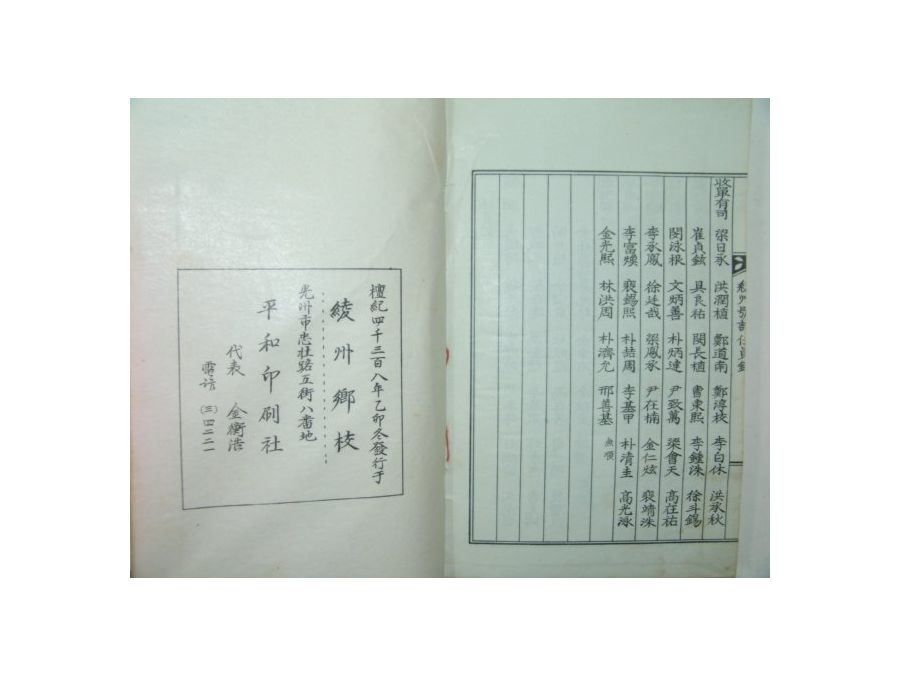 收單有司 梁日承 洪潤植 鄭道南 鄭淳枝 李白休 洪承秋
崔貞鉉 具良祐 閔長植 曺東熙 李鍾洙 徐斗錫
閔泳根 文炳善 朴炳達 尹致萬 梁會天 高在祐
李承鳳 徐廷哉 梁鳳承 尹在楠 金仁炫 裵靖洙
李富煥 裵錫熙 朴喆周 李基甲 朴清圭 高光泳
金光熙 林洪周 朴濟允 邢善基 無順
檀紀四千三百八年乙卯冬發行于
綾州鄉校
光州市忠壯路五街八番地
平和印刷社
代表 金衡浩
電話 (三)四二二一